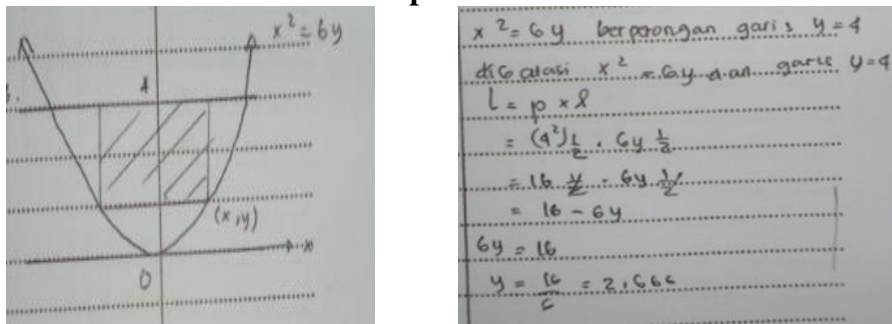 x² = 6y
4
(x,y)
x
0
x² = 6y berpotongan garis y = 4
dibatasi x² = 6y dan garis y = 4
L = p x l
= (4²) 1/2 . 6y 1/2
= 16 1/2 - 6y 1/2
= 16 - 6y
6y = 16
y = 16/6 = 2,666